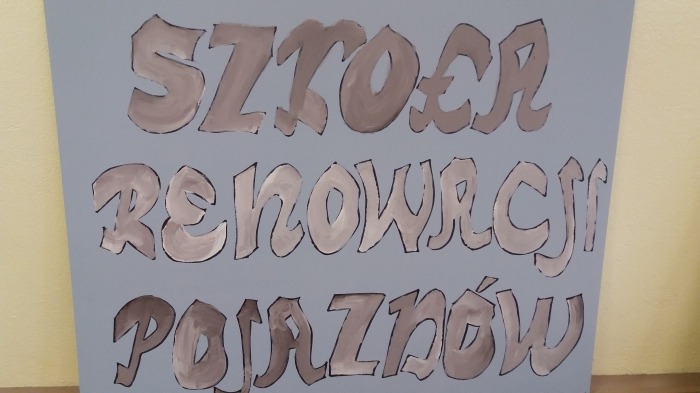 SZKOŁA
RENOWACJI
POJAZDÓW